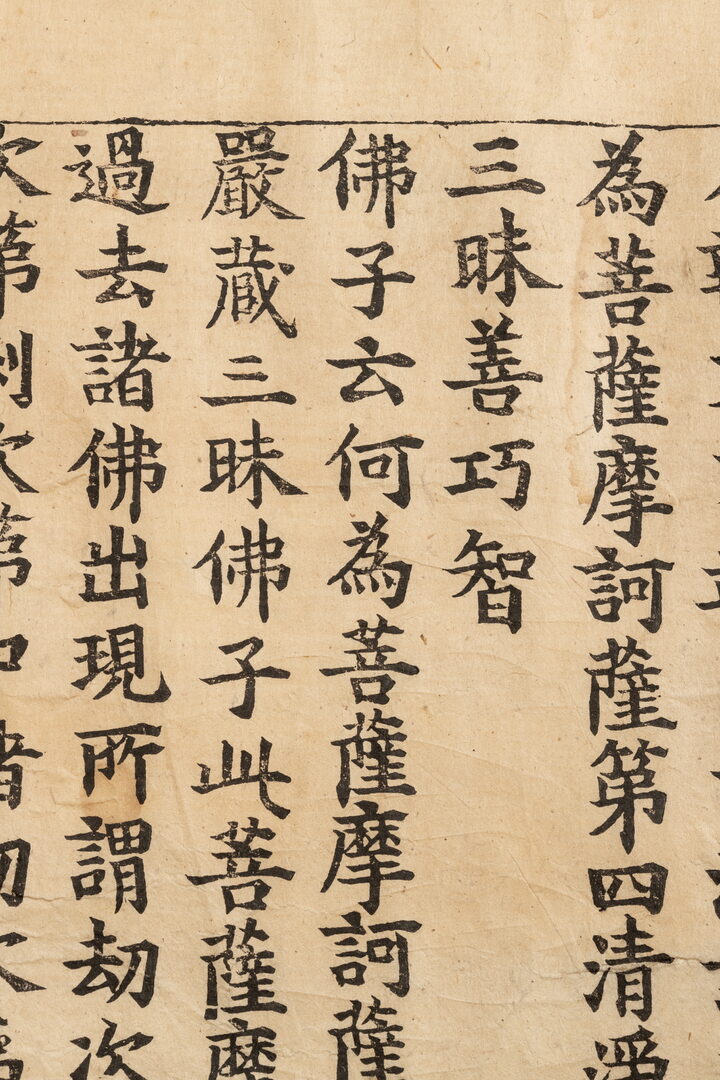 為菩薩摩訶薩第四清淨
三昧善巧智
佛子云何為菩薩摩訶薩
嚴藏三昧佛子此菩薩摩
過去諸佛出現所謂劫次
次第剎次第中諸劫次第